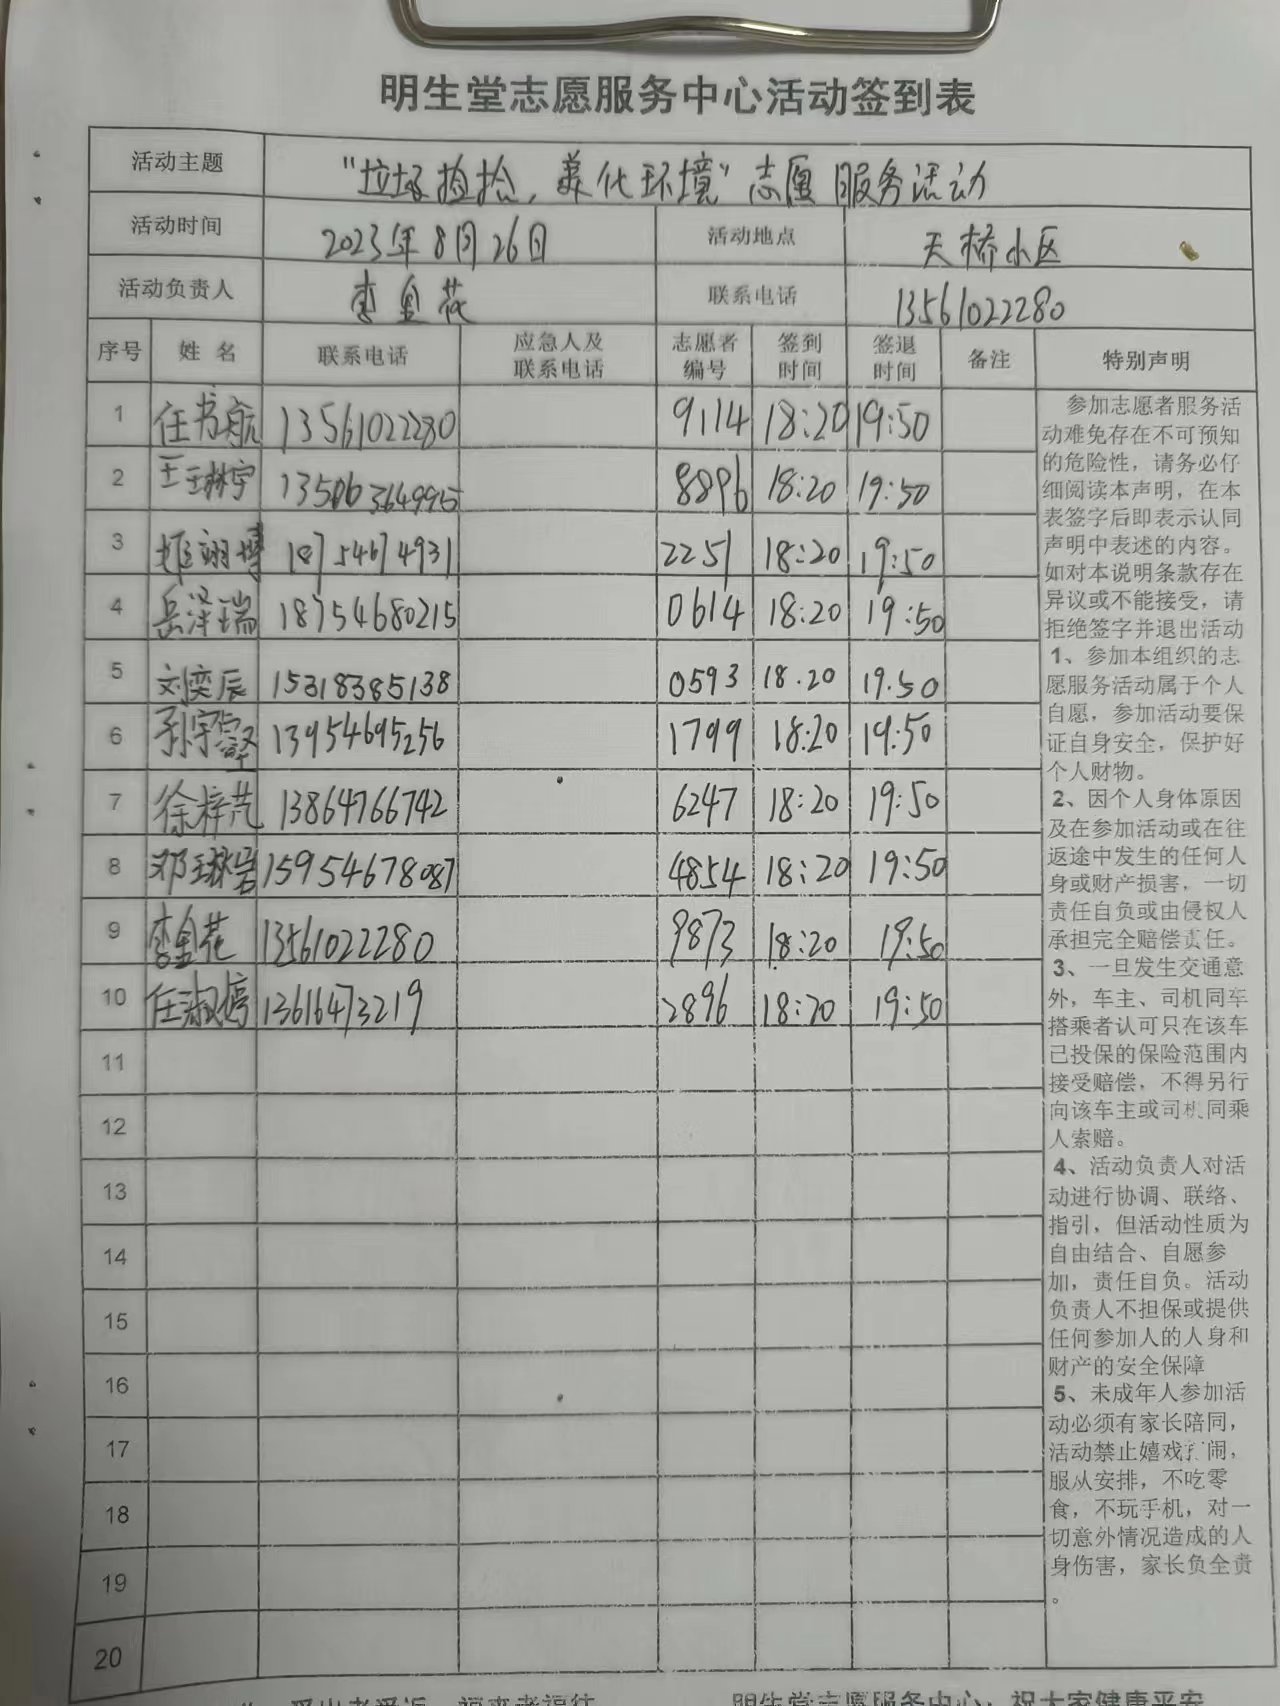 明生堂志愿服务中心活动签到表
活动主题 "垃圾捡拾，美化环境"志愿服务活动
活动时间 2023年8月26日 活动地点 天桥小区
活动负责人 李金花 联系电话 13561022280
序号 姓名 联系电话 应急人及联系电话 志愿者编号 签到时间 签退时间 备注 特别声明
1 任书航 13561022280 9114 18:20 19:50
2 王琳宇 13506364995 8896 18:20 19:50
3 翊博 18754674931 2251 18:20 19:50
4 岳泽瑞 18754680215 0614 18:20 19:50
5 刘奕辰 15318385138 0593 18.20 19.50
6 孙宇 13954695256 1799 18:20 19:50
7 徐梓芃 13864766742 6247 18:20 19:50
8 邓琳岩 15954678087 4854 18:20 19:50
9 李金花 13561022280 9873 18:20 19:50
10 任淑婷 13616473219 2896 18:20 19:50
11
12
13
14
15
16
17
18
19
20
参加志愿者服务活
动难免存在不可预知
的危险性，请务必仔
细阅读本声明，在本
表签字后即表示认同
声明中表述的内容。
如对本说明条款存在
异议或不能接受，请
拒绝签字并退出活动
1、参加本组织的志
愿服务活动属于个人
自愿，参加活动要保
证自身安全，保护好
个人财物。
2、因个人身体原因
及在参加活动或在往
返途中发生的任何人
身或财产损害，一切
责任自负或由侵权人
承担完全赔偿责任。
3、一旦发生交通意
外，车主、司机同车
搭乘者认可只在该车
已投保的保险范围内
接受赔偿，不得另行
向该车主或司机同乘
人索赔。
4、活动负责人对活
动进行协调、联络、
指引，但活动性质为
自由结合、自愿参
加，责任自负。活动
负责人不担保或提供
任何参加人的人身和
财产的安全保障
5、未成年人参加活
动必须有家长陪同，
活动禁止嬉戏打闹，
服从安排，不吃零
食，不玩手机，对一
切意外情况造成的人
身伤害，家长负全责
。
爱出者爱返，福来者福往 明生堂志愿服务中心：祝大家健康平安